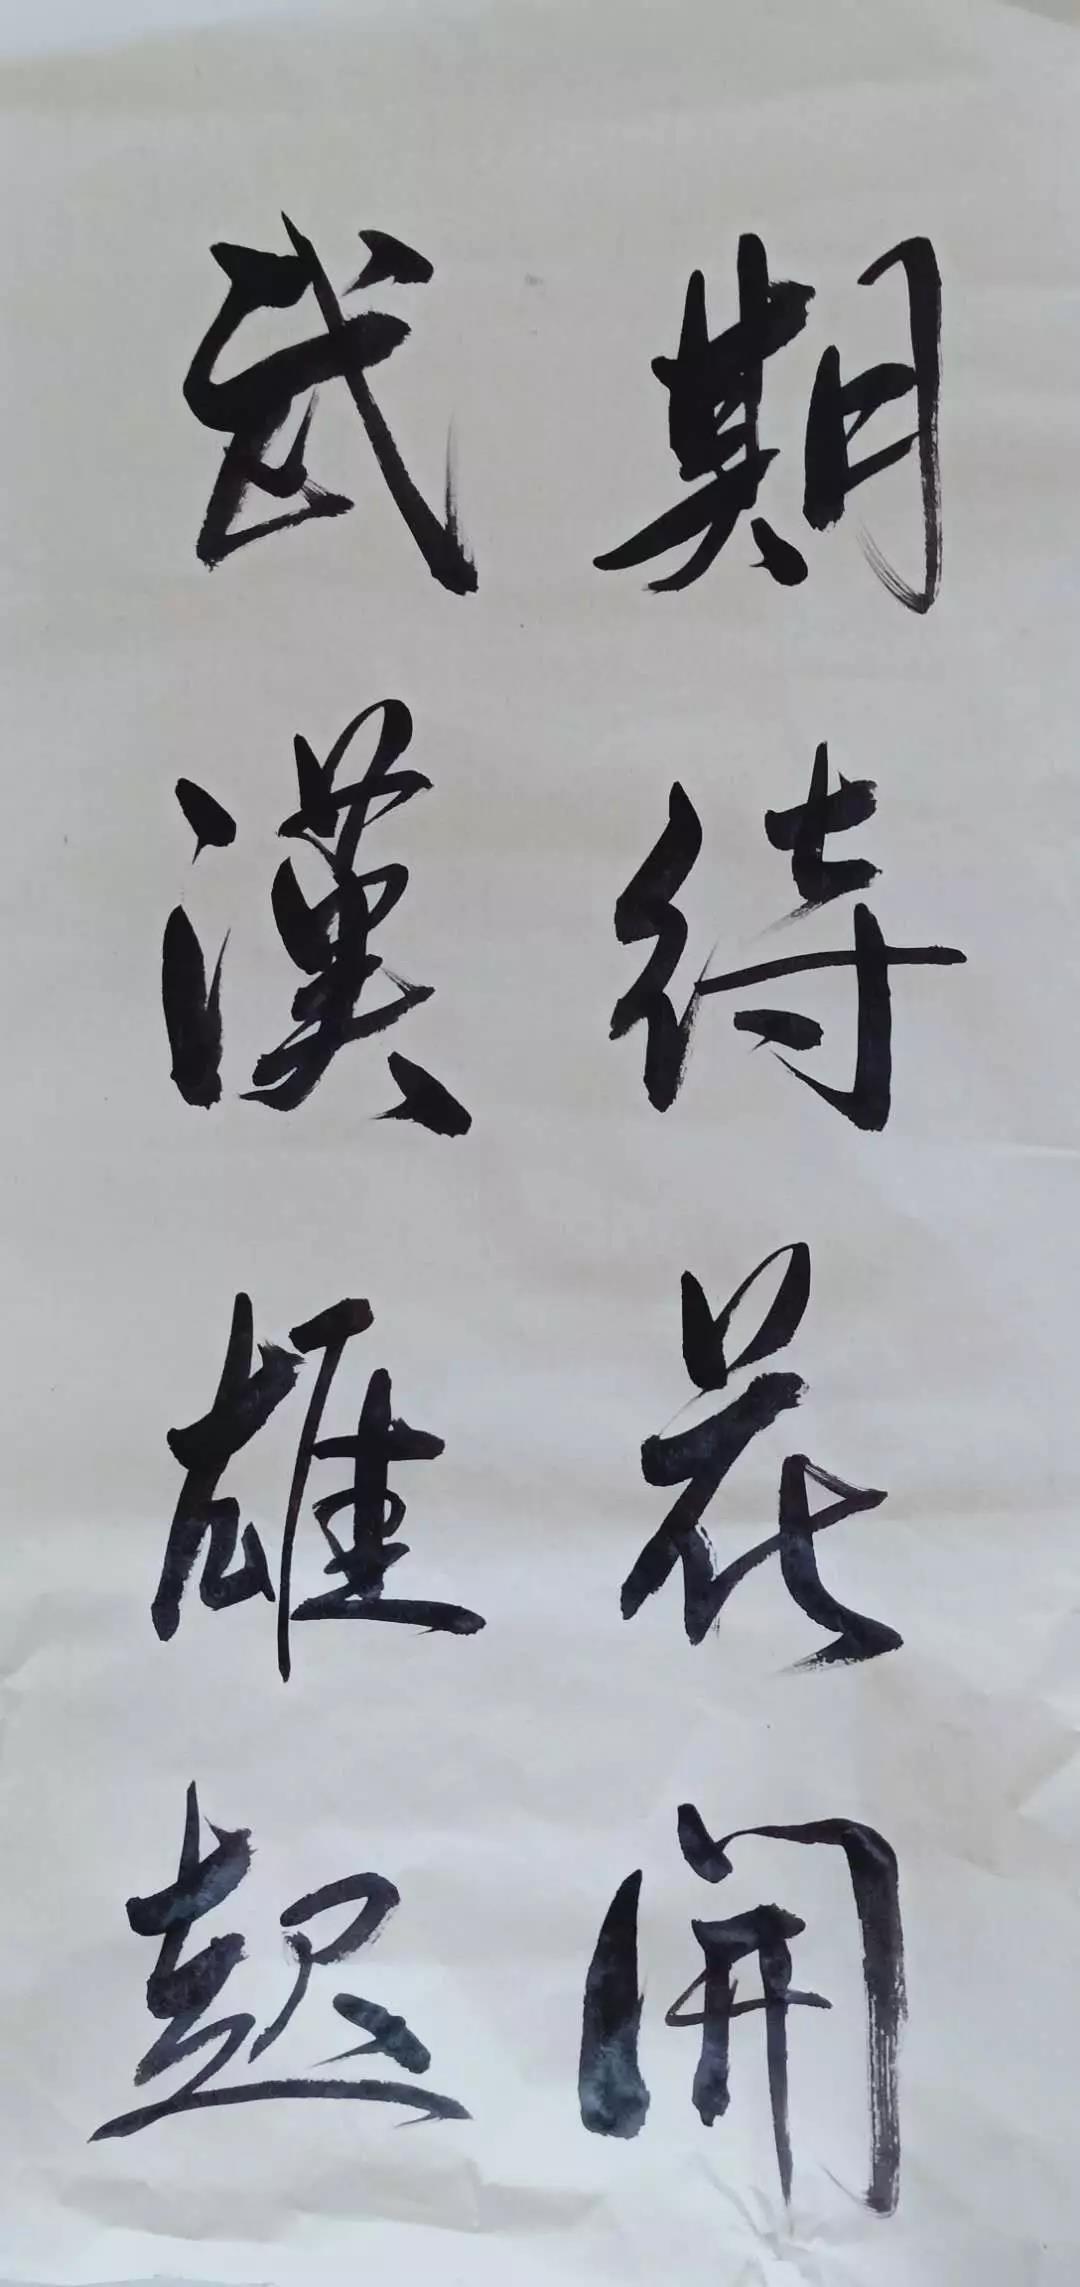 期待花開
武漢雄起